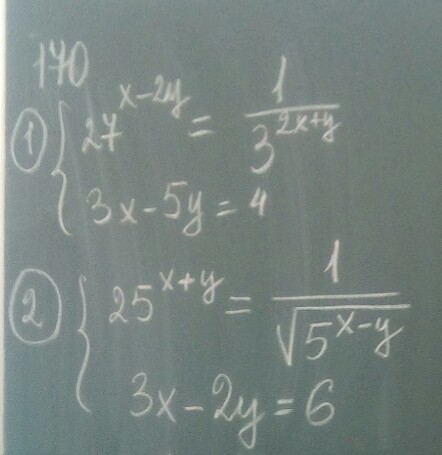 170
① { 27^{x-2y} = \frac{1}{3^{2x+y}}
3x - 5y = 4
② { 25^{x+y} = \frac{1}{\sqrt{5^{x-y}}}
3x - 2y = 6